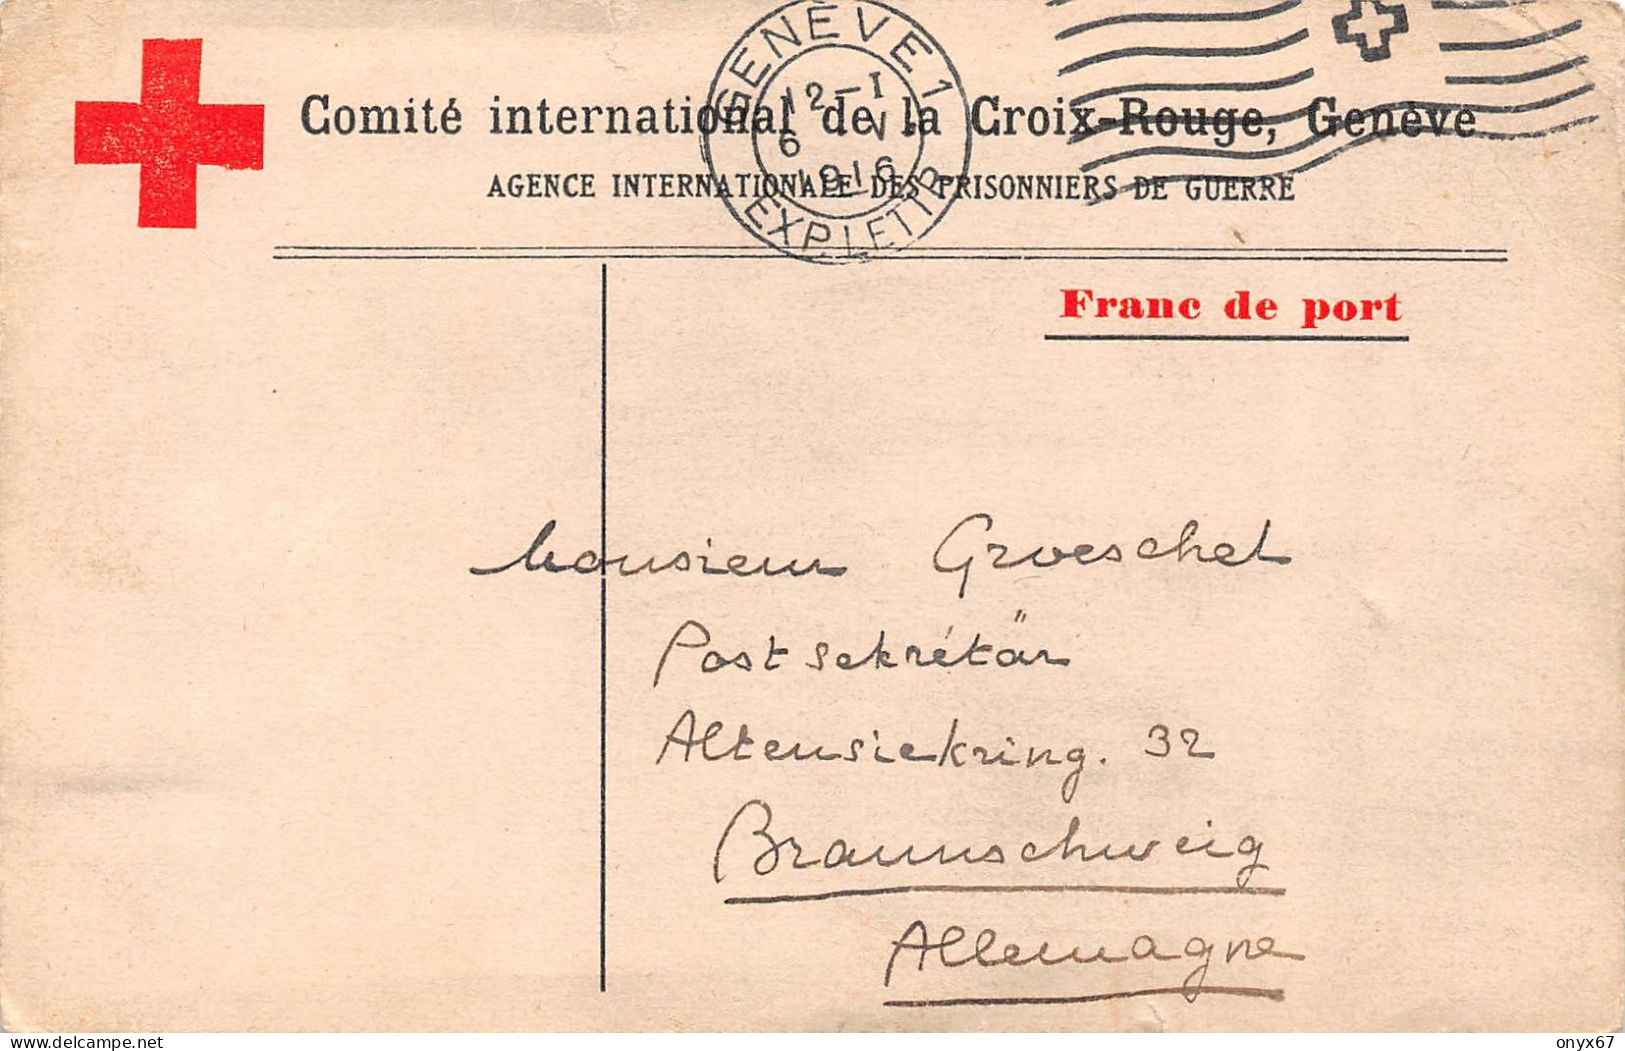 GENÈVE 1
12–I
6 V
1916
EXP. LETTR.
Comité international de la Croix-Rouge, Genève
AGENCE INTERNATIONALE DES PRISONNIERS DE GUERRE
Franc de port
Monsieur Groeschel
Postsekrétär
Altensiekring. 32
Braunschweig
Allemagne
delcampe.net
onyx67